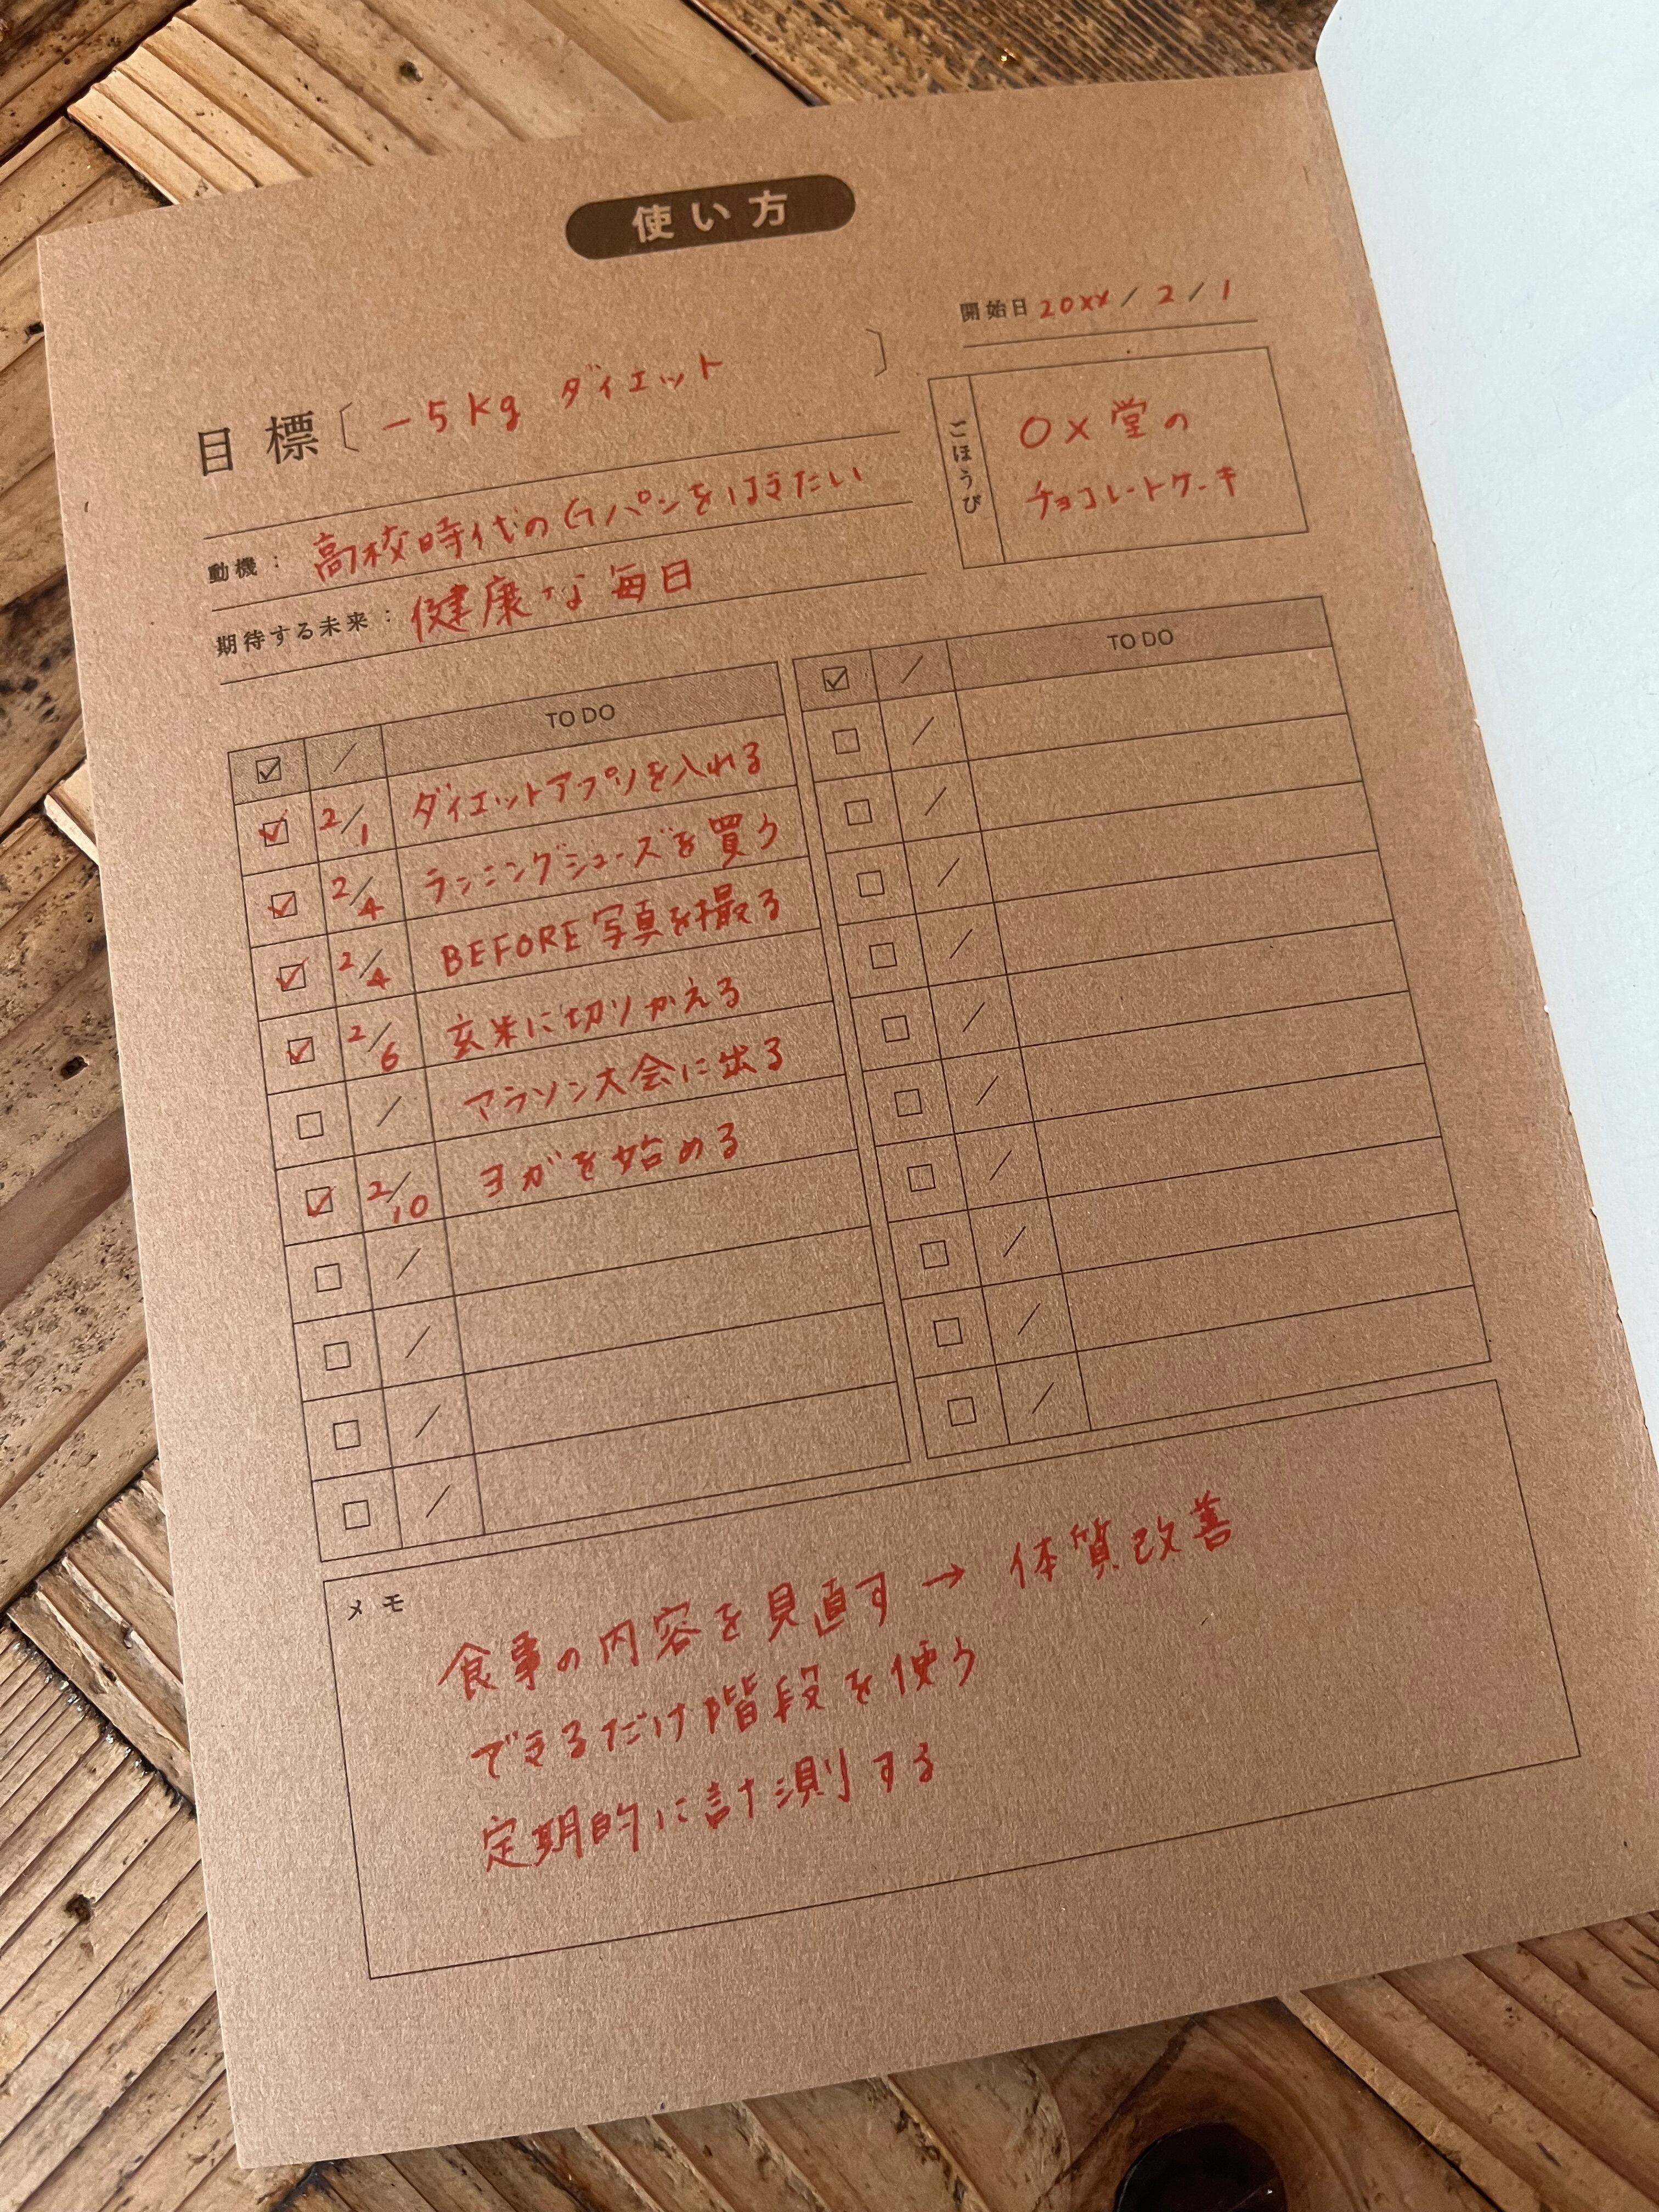 使い方
開始日 20xx / 2 / 1
目標〔 -5kg ダイエット 〕
ごほうび
○×堂の
チョコレートケーキ
動機： 高校時代のGパンをはきたい
期待する未来： 健康な毎日
☑ / TO DO
☑ 2/1 ダイエットアプリを入れる
☑ 2/4 ランニングシューズを買う
☑ 2/4 BEFORE写真を撮る
☑ 2/6 玄米に切りかえる
□ / マラソン大会に出る
☑ 2/10 ヨガを始める
□ /
□ /
□ /
□ /
☑ / TO DO
□ /
□ /
□ /
□ /
□ /
□ /
□ /
□ /
□ /
□ /
メモ
食事の内容を見直す → 体質改善
できるだけ階段を使う
定期的に計測する